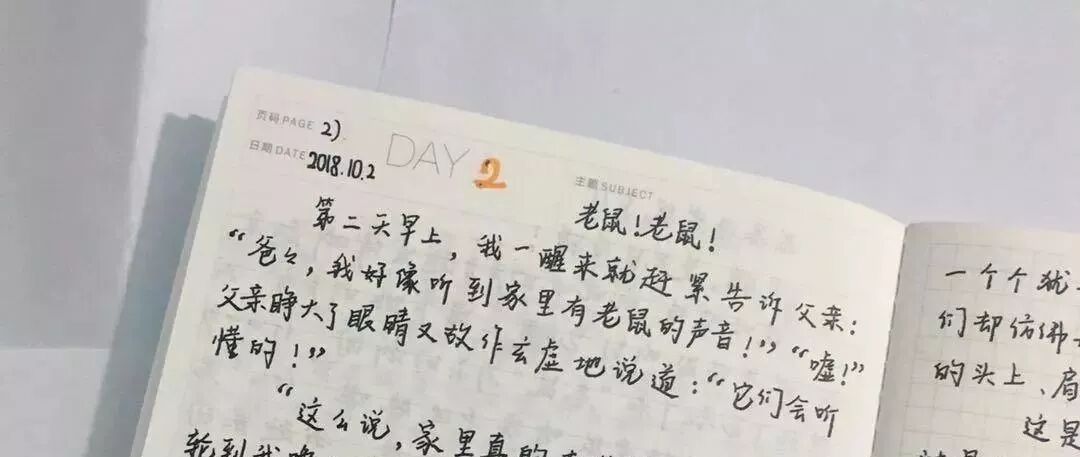 页码PAGE 2).
日期DATE 2018.10.2
DAY 2
主题SUBJECT
老鼠!老鼠!
第二天早上，我一醒来就赶紧告诉父亲：
“爸々，我好像听到家里有老鼠的声音！”“嘘！”
父亲睁大了眼睛又故作玄虚地说道：“它们会听
懂的！”
“这么说，家里真的
轮到我
一个个犹
们却仿佛
的头上、肩
这是